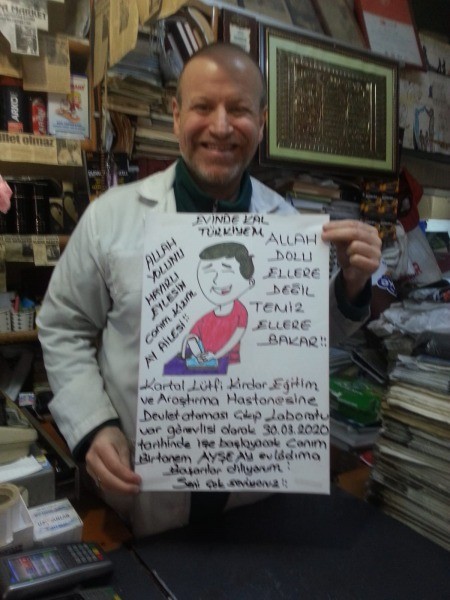 EVİNDE KAL
TÜRKİYEM
ALLAH
YOLUNU
HAYIRLI
EYLESİN
ALLAH
DOLU
ELLERE
DEĞİL
TEMİZ
ELLERE
BAKAR!!
AY AİLESİ!!
Kartal Lütfi Kırdar Eğitim
ve Araştırma Hastanesine
Devlet ataması Çıkıp Laboratu
var görevlisi olarak 30.03.2020
tarihinde işe başlayacak Canım
Birtanem AYŞE AY evladıma
Başarılar diliyorum!
Seni çok seviyoruz!!